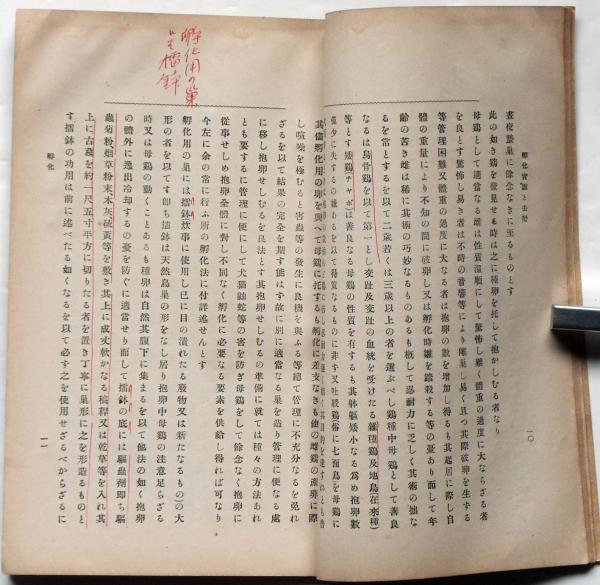 孵化實驗と去勢
一〇
晝夜蟄巢に餘念なきに至るものとす
此の如き鷄を發見せる時は之に種卵を托して抱かしむる者なり
母鷄として適當なる雌は性質溫順にして驚怖し難く體重の過度に大ならざる者
を良とす驚怖し易き者は不時の音響等により離巢し易く且つ其際破卵を生する
等管理困難又體重の過度に大なる者は抱卵の數を增加し得るも其起居に際し自
體の重量により不知の間に破卵し又は孵化時雛を踏殺する等の憂あり而して年
齡の若き雌は稀に其術の巧妙なるものあるも概して忍耐力に乏しく其術の拙な
るを常とするを以て二歲若くは三歲以上の者を選ぶべし鷄種中母鷄として善良
なるは烏骨鷄を以て第一とし交趾及交趾の血統を受けたる雜種鷄及地鳥(在來種)
等とす矮鷄(チャボ)は善良なる母鷄の性質を有するも其軀矮小なる爲め抱卵數
僅少に失するの嫌あるを以て得策なるものに非ず又吐綬鷄俗に七面鳥を母鷄に
孵化用の巢
は擂鉢
其儘孵化用の卵を與へて母鷄に托するも孵化に差支なきも他の雌鷄の產卵に際
し喧噪を極むると害蟲等の發生に良機を與ふる等總て管理に不充分なるを免れ
ざるを以て結果の完全を期す能はず故に別に適當なる巢を造り管理に便なる處
に移し抱卵せしむるを良法とす其抱卵せしむるの準備に就ては種々の方法あれ
とも要するに管理に便にして犬猫鼬蛇等の害を防ぎ母鷄をして餘念なく抱卵に
從事せしめ抱卵全體に對し不同なく孵化に必要なる要素を供給し得れば可なり
今左に余の常に行ふ所の孵化法に付詳述せんとす
孵化用の巢には擂鉢(炊事に使用し已に目の潰れたる廢物又は新たなるもの)の大
形の者を以てす卽ち擂鉢は天然鳥巢の形をなし居り抱卵中母鷄の注意足らざる
時又は母鷄の動くことあるも種卵は自然其腹下に集まるを以て他法の如く抱卵
の體外に逸出冷却するの憂を防ぐに適當せり而して擂鉢の底には驅蟲劑卽ち驅
蟲菊粉烟草粉末木灰硫黃等を敷き其上に成丈軟かなる稿稈又は乾草等を入れ其
上に古莚を約一尺五寸平方に切りたる者を置き丁寧に巢形に之を形造るものと
す擂鉢の功用は前に述べたる如くなるを以て必す之を使用せざるべからざるに
孵化
一一